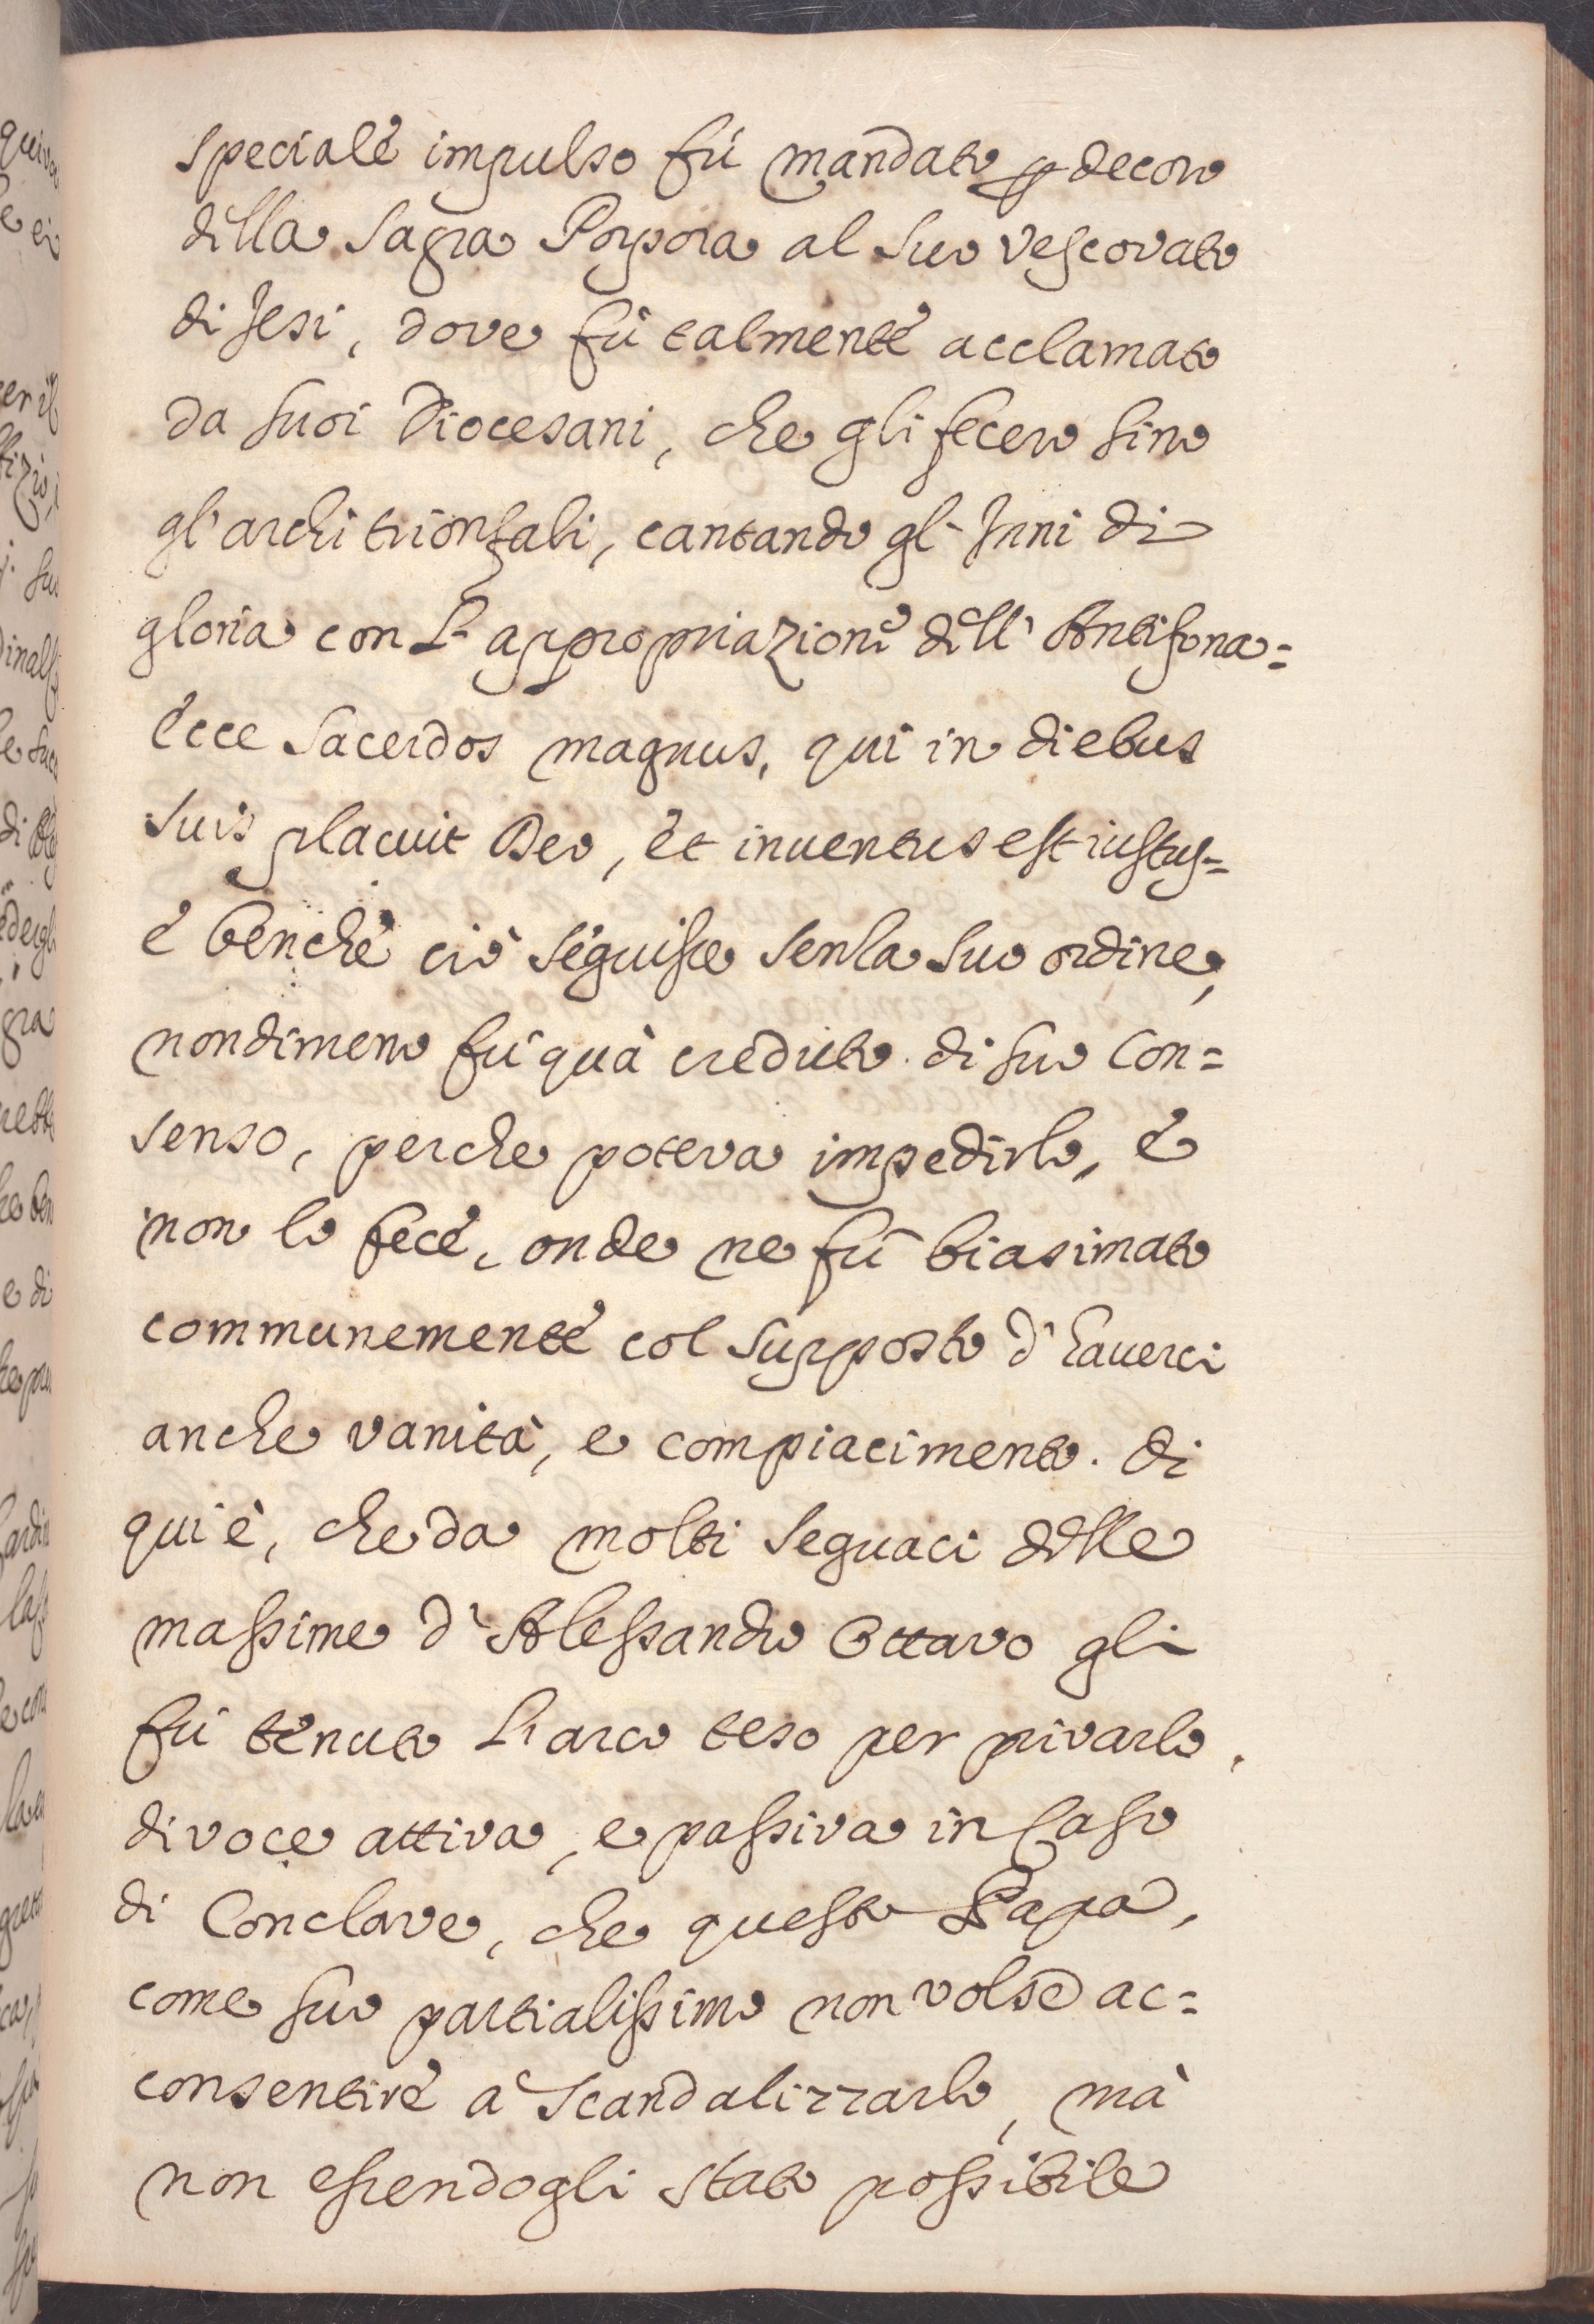 speciale impulso fù mandato p decoro
della Sagra Porpora al suo vescovato
di Jesi, dove fù talmente acclamato
da suoi Diocesani, che gli fecero sino
gl'archi trionfali, cantando gl'Inni di
gloria con l'appropriazione dell'Antifona=
Ecce Sacerdos magnus, qui in diebus
suis placuit Deo, et inuentus est iustus=
è benchè ciò seguisse senza suo ordine,
nondimeno fù quà creduto di suo con=
senso, perche poteva impedirlo, è
non lo fece, onde ne fù biasimato
communemente col supposto d'haverci
anche vanità, e compiacimento. di
qui è, che da molti seguaci delle
massime d'Alessandro Ottavo gli
fù tenuto l'arco teso per privarlo,
di voce attiva, e passiva in caso
di Conclave, che questo Papa,
come suo partialissimo non volse ac=
consentire à scandalizzarlo, mà
non essendogli stato possibile